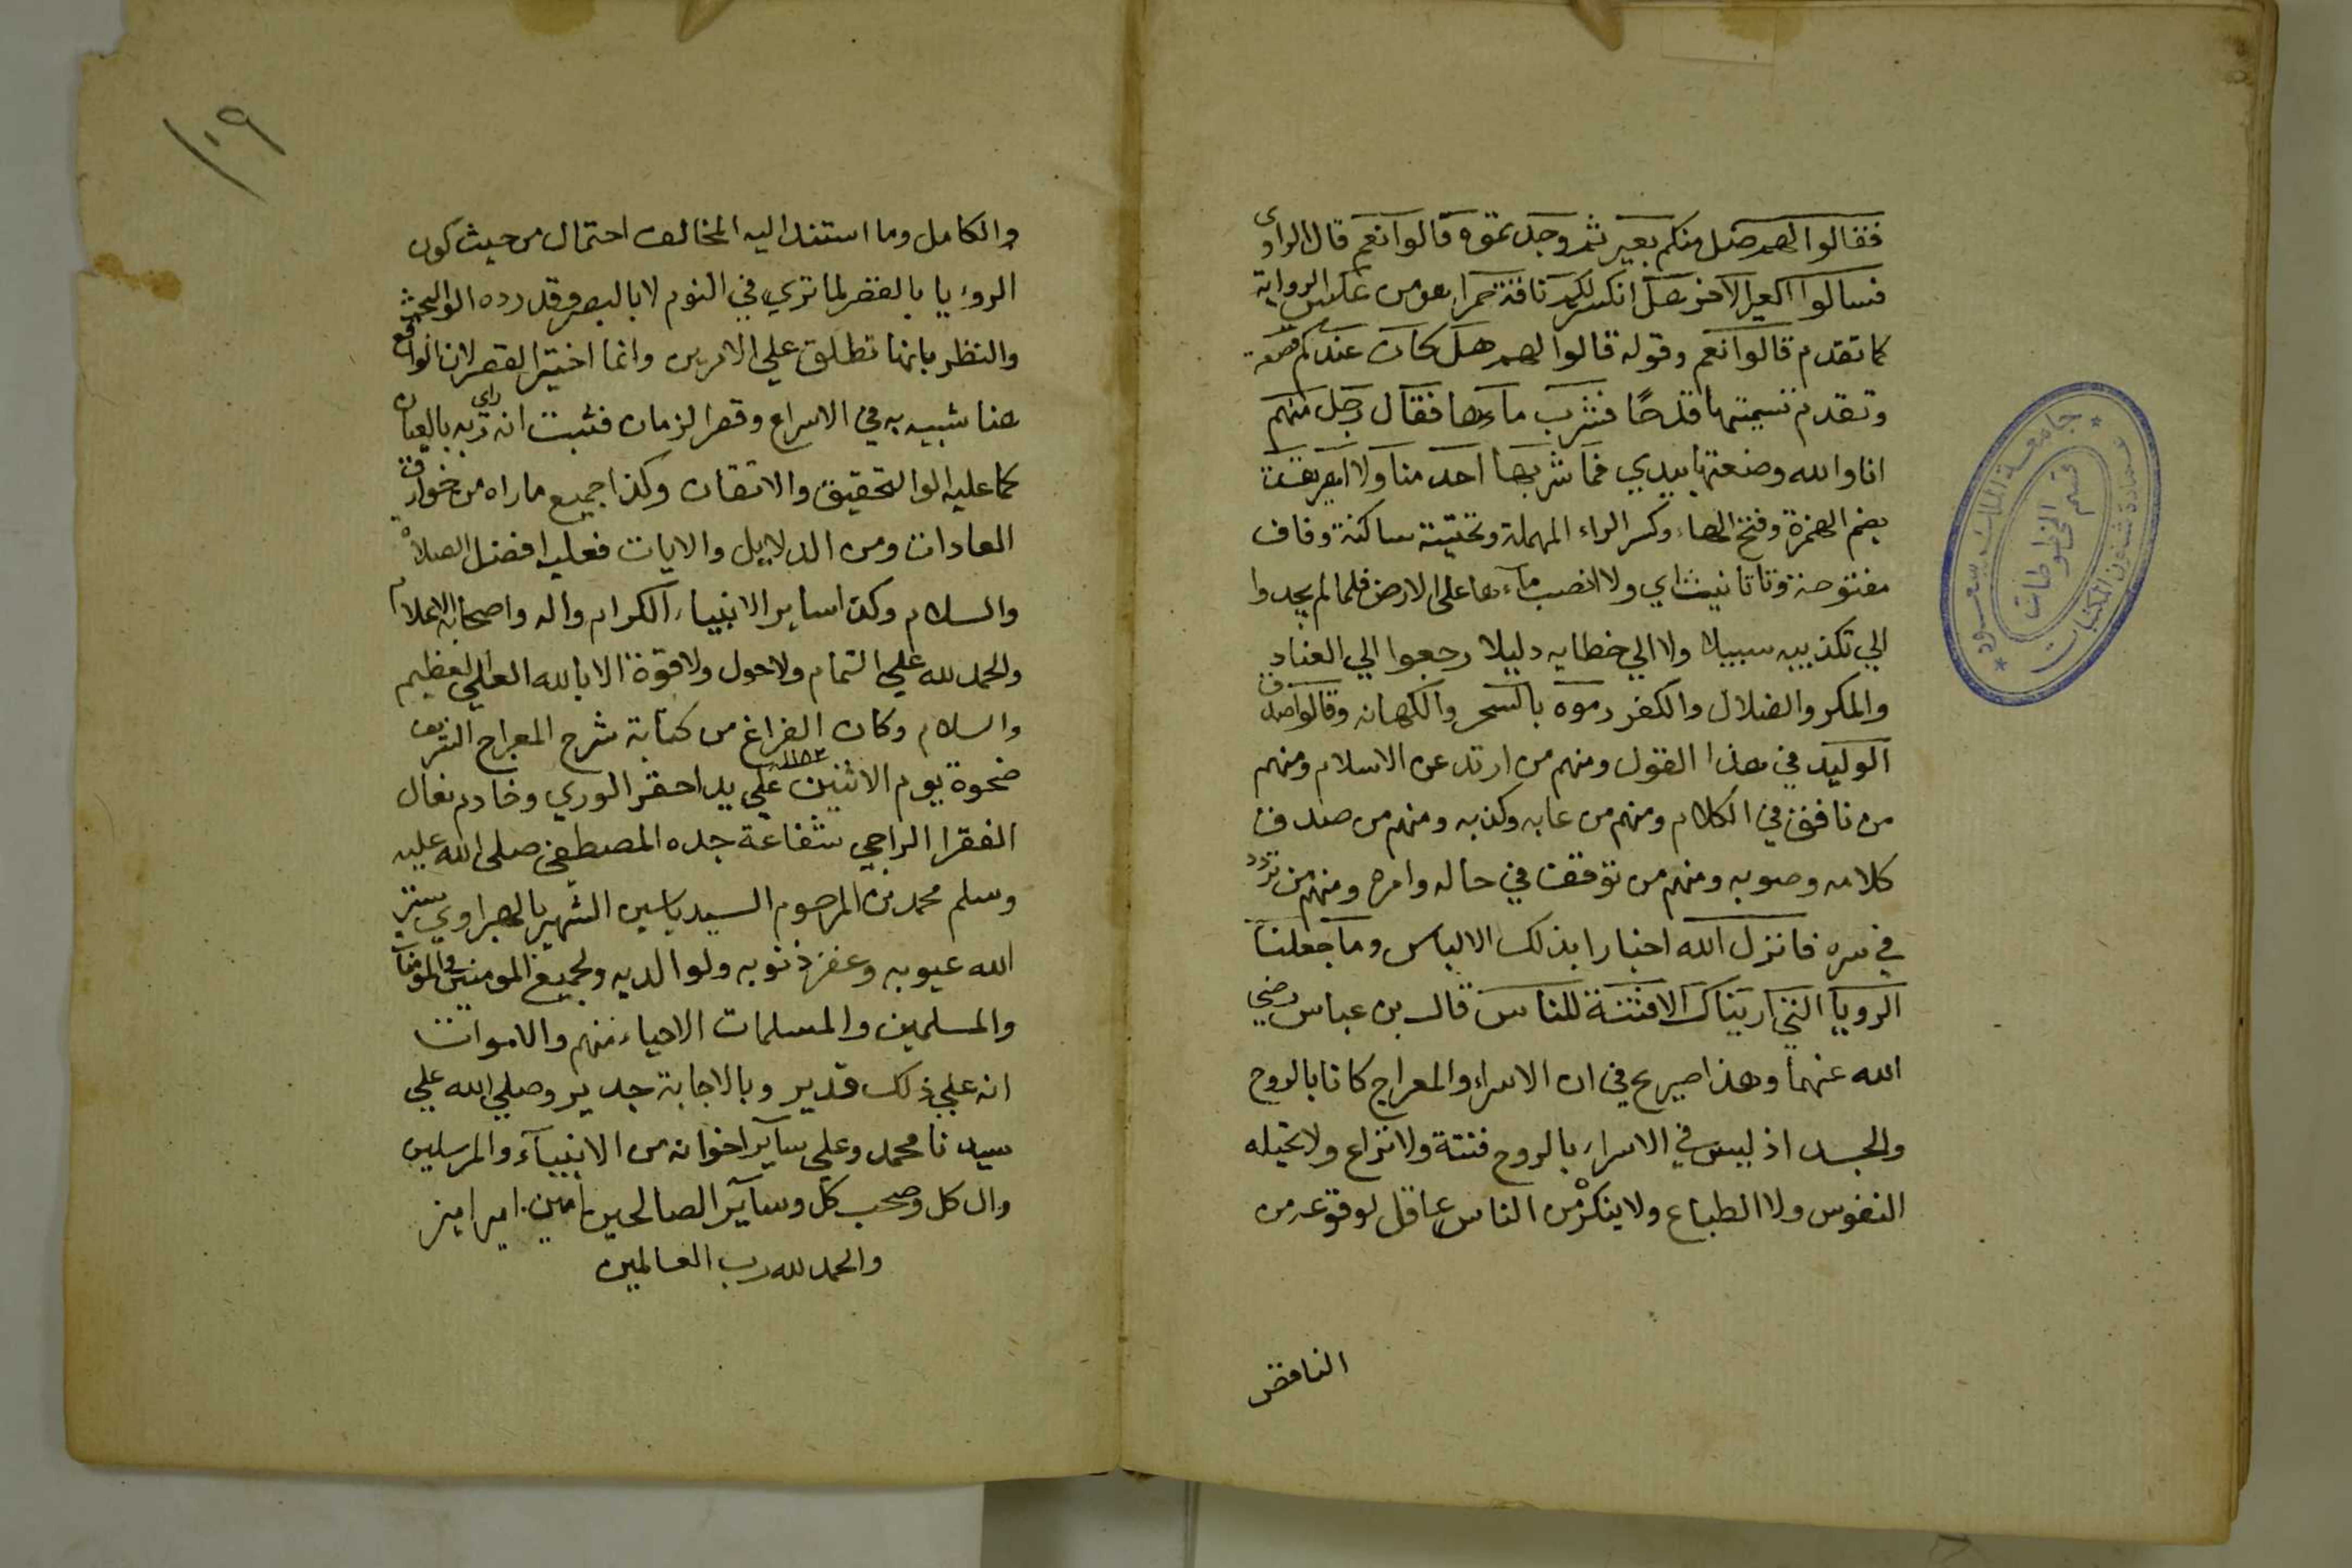 فقالوا لهم ضل منكم بعير ثم وجدتموه قالوا نعم قال الراوى
فسالوا العير الاخر هل انكسر لكم ناقة حمرا هو من عكس الرواية
كما تقدم قالوا نعم وقوله قالوا لهم هل كان عندكم قصعة
وتقدم تسميتها قدحًا فشرب ماءها فقال رجل منهم
انا والله وضعتها بيدي فما شربها احد منا ولا اهريقت
بضم الهمزة وفتح الهاء وكسر الراء المهملة وتحتية ساكنة وقاف
مفتوحة وتا تانيث اي ولا انصب ماءها على الارض فلما لم يجدوا
الي تكذيبه سبيلا ولا الي خطايه دليلا رجعوا الي العناد
والمكر والضلال والكفر رموه بالسحر والكهانه وقالوا صدق
الوليد في هذا القول ومنهم من ارتد عن الاسلام ومنهم
من نافق في الكلام ومنهم من عابه وكذبه ومنهم من صدق
كلامه وصوبه ومنهم من توقف في حاله وامره ومنهم من تردد
في سره فانزل الله اخبارا بذلك الالباس وما جعلنا
الرويا التي اريناك الا فتنة للناس قال بن عباس رضي
الله عنهما وهذا صريح في ان الاسراء والمعراج كانا بالروح
والجسد اذ ليس في الاسراء بالروح فتنة ولا نزاع ولا تحيله
النفوس ولا الطباع ولا ينكره من الناس عاقل لوقوعه من
الناقص
جامعة الملك سعود
عمادة شئون المكتبات
قسم المخطوطات
١٠٩
والكامل وما استند اليه المخالف احتمال من حيث كون
الروءيا بالقصر لما تري في النوم لا بالبصر وقد رده اولوا البحث
والنظر بانها تطلق علي الامرين وانما اختير القصر لان الواقع
هنا شبيه به في الاسراع وقصر الزمان فثبت انه راي ربه بالعيان
كما عليه اولوا التحقيق والاتقان وكذا جميع ما راه من خوارق
العادات ومن الدلايل والايات فعليه افضل الصلاة
والسلام وكذا ساير الانبياء الكرام واله واصحابه الاعلام
والحمد لله علي التمام ولا حول ولا قوة الا بالله العلي العظيم
والسلام وكان الفراغ من كتابة شرح المعراج الشريف
ضحوة يوم الاثنين ١١٨٣ علي يد احقر الوري وخادم نعال
الفقرا الراجي شفاعة جده المصطفي صلى الله عليه
وسلم محمد بن المرحوم السيد ياسين الشهير بالهراوي ستر
الله عيوبه وغفر ذنوبه ولوالديه ولجميع المومنين والمومنات
والمسلمين والمسلمات الاحياء منهم والاموات
انه علي ذلك قدير وبالاجابة جدير وصلي الله علي
سيدنا محمد وعلي ساير اخوانه من الانبياء والمرسلين
وال كل وصحب كل وساير الصالحين امين امين امين
والحمد لله رب العالمين